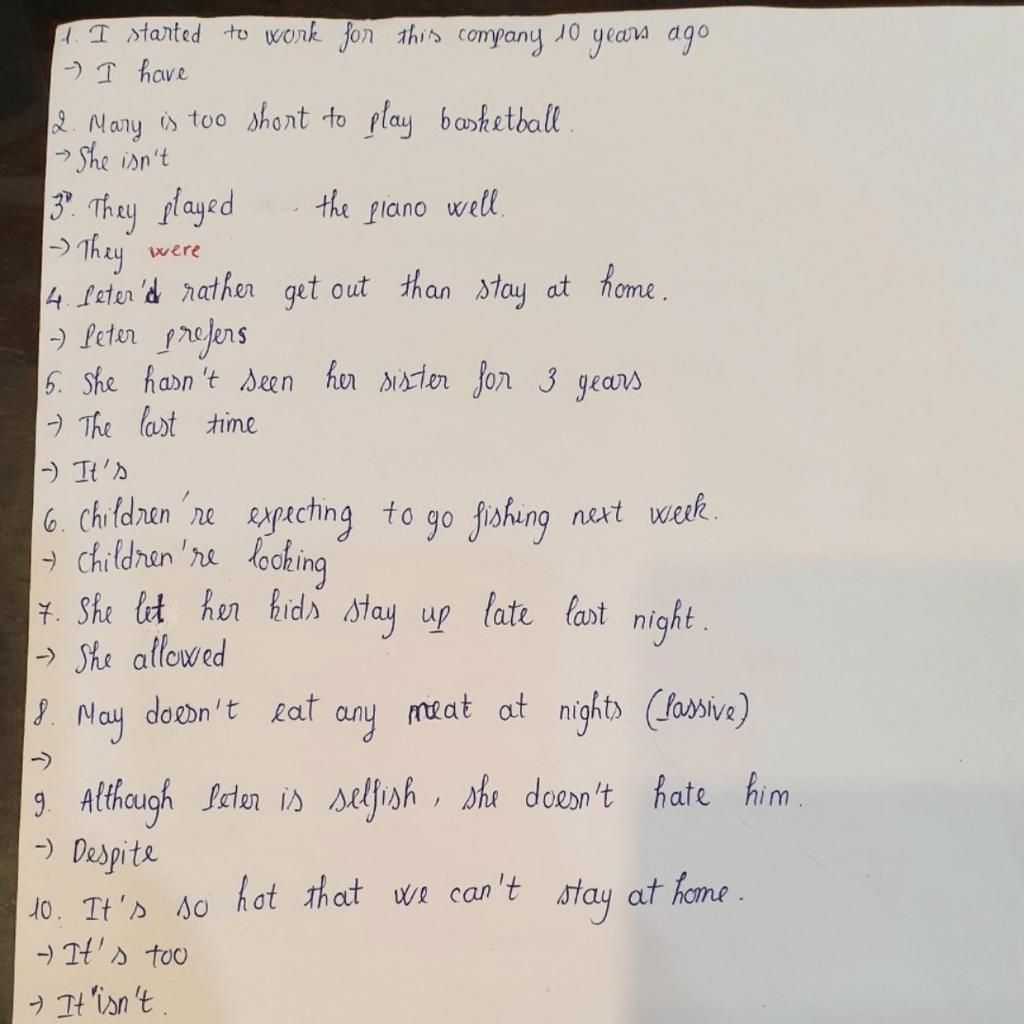 1. I started to work for this company 10 years ago
→ I have
2. Mary is too short to play basketball.
→ She isn't
3. They played the piano well.
→ They were
4. Peter'd rather get out than stay at home.
→ Peter prefers
5. She hasn't seen her sister for 3 years
→ The last time
→ It's
6. Children're expecting to go fishing next week.
→ Children're looking
7. She let her kids stay up late last night.
→ She allowed
8. May doesn't eat any meat at nights (Passive)
→
9. Although Peter is selfish, she doesn't hate him.
→ Despite
10. It's so hot that we can't stay at home.
→ It's too
→ It isn't.